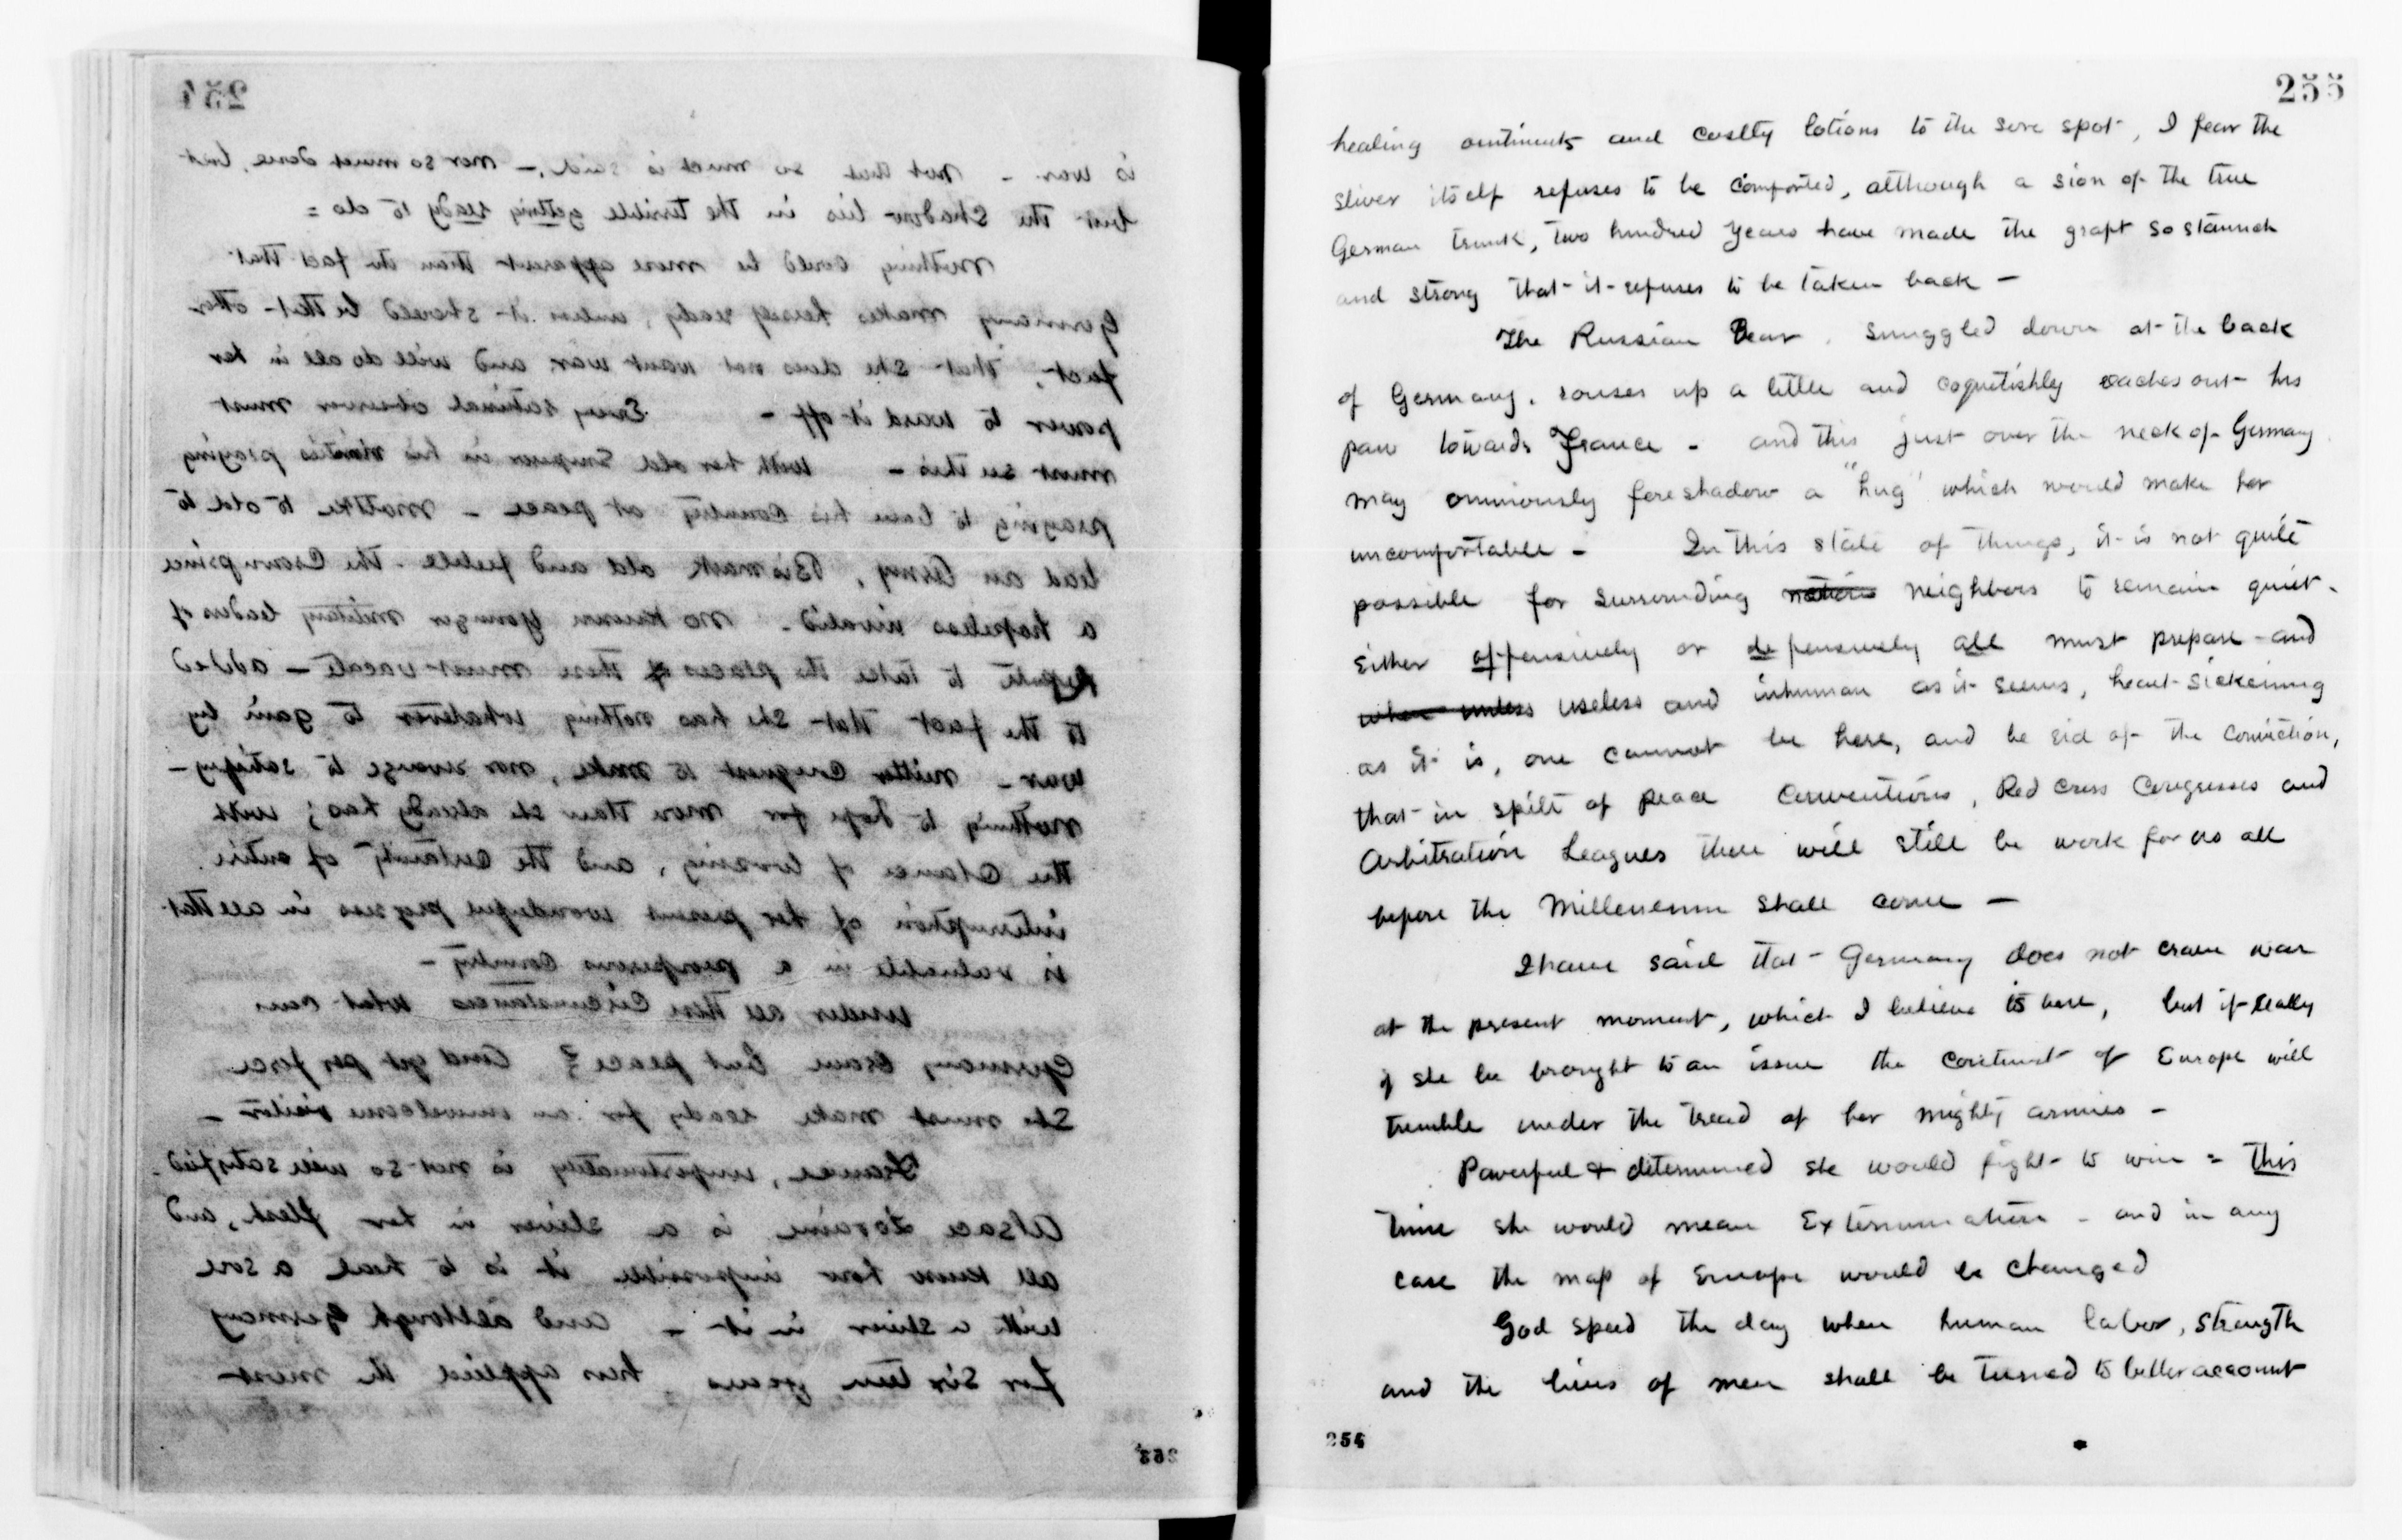 254
is war - not that so much is said, - nor so much done, but
but the shadow lies in the terrible getting ready to do =
Nothing could be more apparent than the fact that
Germany makes herself ready, unless it should be that other
fact, that she does not want war and will do all in her
power to ward it off - Every rational observer must
must see this - With her old Emperor in his nineties praying
praying to leave his Country at peace - Moltke to old to
lead an Army, Bismark old and feeble. The Crown prince
a hopeless invalid - no known younger military leaders of
repute to take the places of these must vacate - added
to the fact that she has nothing whatever to gain by
war - neither conquest to make, nor revenge to satisfy -
nothing to hope for more than she already has; with
the chance of loosing, and the certainty of entire
interruption of her present wonderful progress in all that
is valuable in a prosperous Country -
Under all these circumstances what can
Germany crave but peace? And yet per force
She must make ready for an unwelcome visitor -
France, unfortunately is not so well satisfied.
Alsace Loraine is a sliver in her flesh, and,
all know how impossible it is to heal a sore
with a sliver in it - and although Germany
for sixteen years, has applied the most
253
255
healing ointments and costly lotions to the sore spot, I fear the
sliver itself refuses to be comforted, although a sion of the true
German trunk, two hundred years have made the graft so staunch
and strong that it refuses to be taken back -
The Russian Bear, snuggled down at the back
of Germany, rouses up a little and coquetishly reaches out his
paw towards France - and this just over the neck of Germany
may ominously foreshadow a "hug" which would make her
uncomfortable - In this state of things, it is not quite
possible for surrounding nations neighbors to remain quiet -
Either offensively or defensively all must prepare - and
when unless useless and inhuman as it seems, heart-sickening
as it is, one cannot be here, and be rid of the conviction,
that in spite of peace Conventions, Red Cross Congresses and
Arbitration Leagues there will still be work for us all
before the Millenenum shall come -
I have said that Germany does not crave war
at the present moment, which I believe is true, but if really
if she be brought to an issue the continent of Europe will
tremble under the tread of her mighty armies -
Powerful & determined she would fight to win = This
time she would mean Extermination - and in any
case the map of Europe would be changed
God speed the day when human labor, strength
and the lives of men shall be turned to better account
254